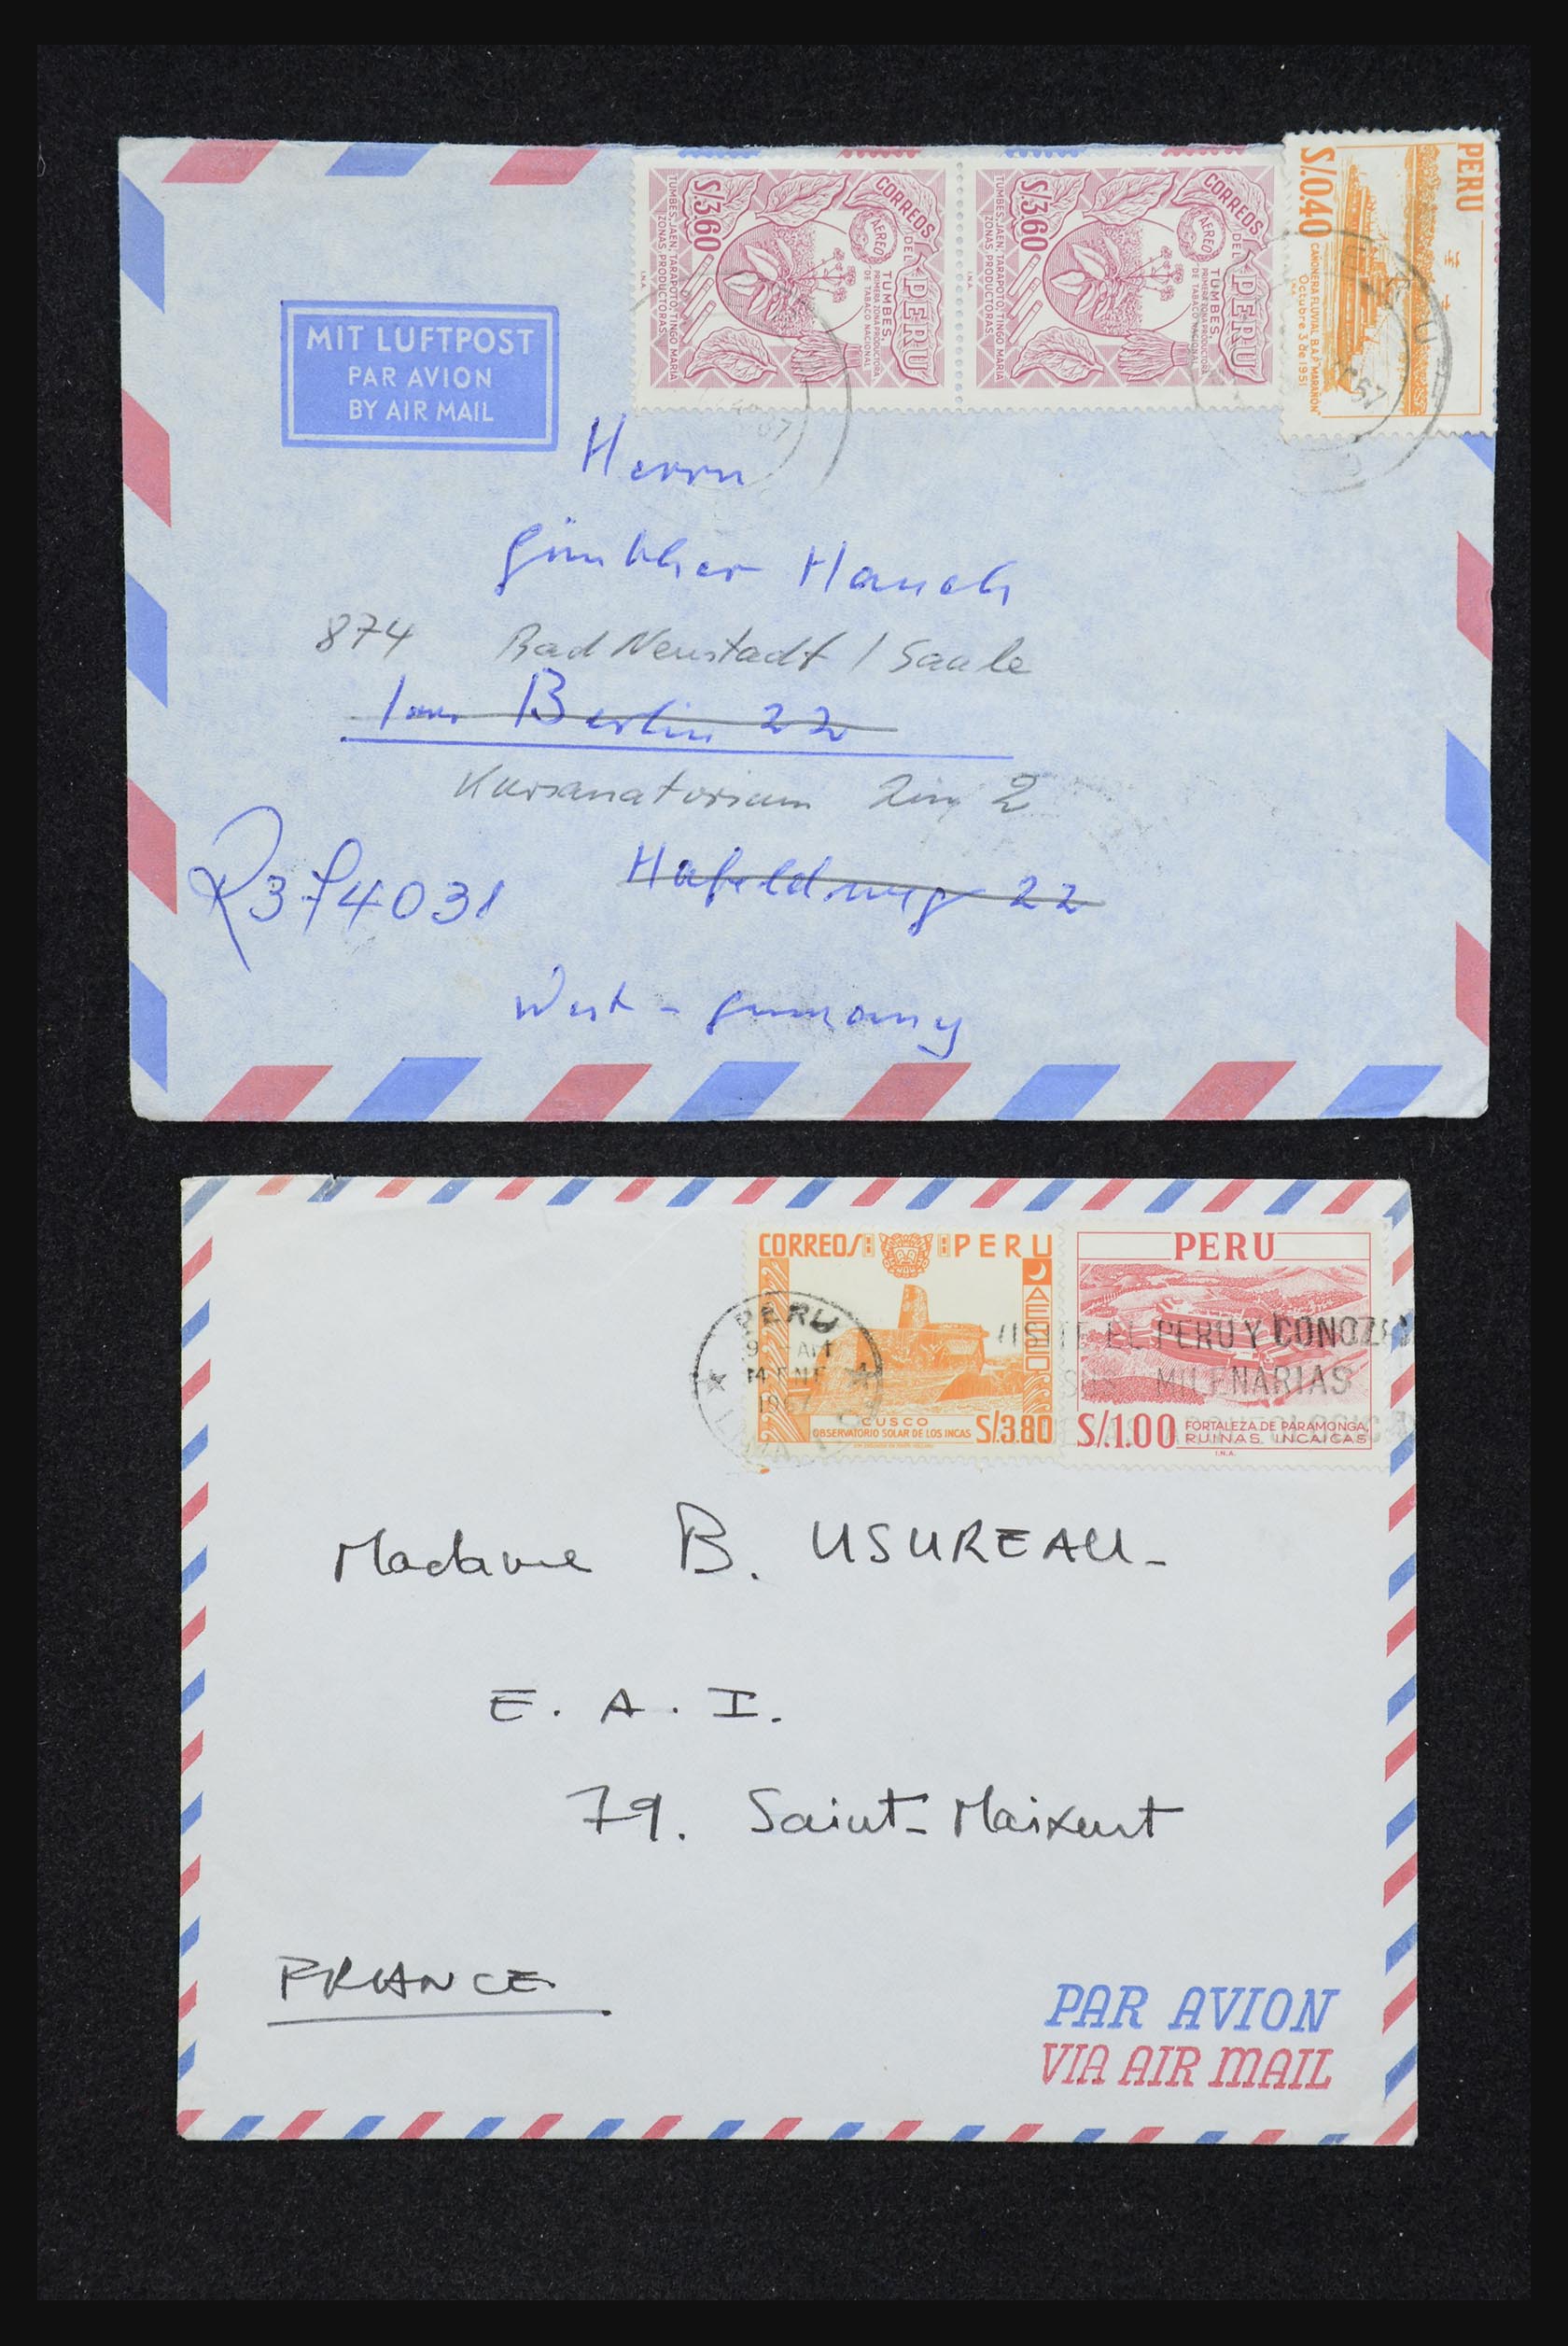 CORREOS DEL PERU
AEREO
TUMBES,
PRIMERA ZONA PRODUCTORA
DE TABACO NACIONAL
S/.3.60
TUMBES, JAEN, TARAPOTO, TINGO MARIA
ZONAS PRODUCTORAS
I.N.A.
CORREOS DEL PERU
AEREO
TUMBES,
PRIMERA ZONA PRODUCTORA
DE TABACO NACIONAL
S/.3.60
TUMBES, JAEN, TARAPOTO, TINGO MARIA
ZONAS PRODUCTORAS
I.N.A.
PERU
S/.0.40
CAÑONERA FLUVIAL B.A.P. "MARAÑON"
Octubre 3 de 1951
MIT LUFTPOST
PAR AVION
BY AIR MAIL
Herrn
Günther Hauch
874 Bad Neustadt / Saale
Berlin 22
Kursanatorium Zim 2
R374031
22
West - Germany
CORREOS PERU
AEREO
CUSCO
OBSERVATORIO SOLAR DE LOS INCAS
S/.3.80
PERU
S/.1.00
FORTALEZA DE PARAMONGA,
RUINAS INCAICAS
I.N.A.
PERU
9 AM
14 ENE
LIMA
VISITE EL PERU Y CONOZCA
SUS MILENARIAS
Madame B. USUREAU -
E. A. I.
79. Saint-Maixent
FRANCE
PAR AVION
VIA AIR MAIL